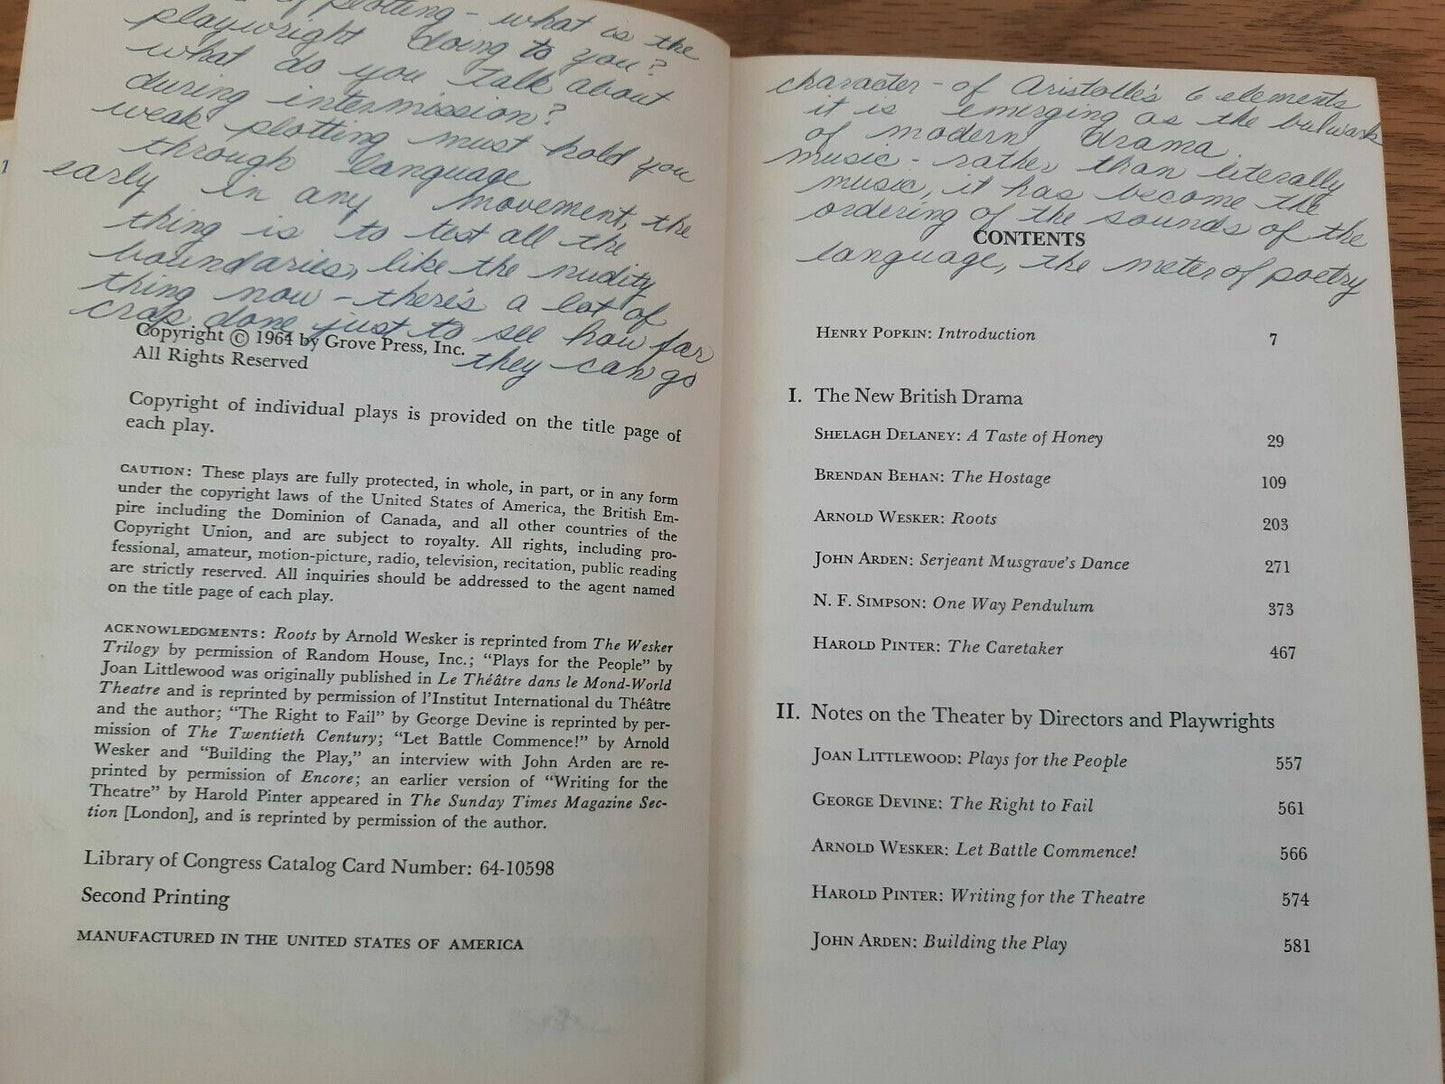 of plotting - what is the
playwright doing to you?
what do you talk about
during intermission?
weak plotting must hold you
through language
early in any movement, the
thing is to test all the
boundaries, like the nudity
thing now - there's a lot of
crap done just to see how far
they can go
Copyright © 1964 by Grove Press, Inc.
All Rights Reserved
Copyright of individual plays is provided on the title page of
each play.
CAUTION: These plays are fully protected, in whole, in part, or in any form
under the copyright laws of the United States of America, the British Em-
pire including the Dominion of Canada, and all other countries of the
Copyright Union, and are subject to royalty. All rights, including pro-
fessional, amateur, motion-picture, radio, television, recitation, public reading
are strictly reserved. All inquiries should be addressed to the agent named
on the title page of each play.
ACKNOWLEDGMENTS: Roots by Arnold Wesker is reprinted from The Wesker
Trilogy by permission of Random House, Inc.; "Plays for the People" by
Joan Littlewood was originally published in Le Théâtre dans le Mond-World
Theatre and is reprinted by permission of l'Institut International du Théâtre
and the author; "The Right to Fail" by George Devine is reprinted by per-
mission of The Twentieth Century; "Let Battle Commence!" by Arnold
Wesker and "Building the Play," an interview with John Arden are re-
printed by permission of Encore; an earlier version of "Writing for the
Theatre" by Harold Pinter appeared in The Sunday Times Magazine Sec-
tion [London], and is reprinted by permission of the author.
Library of Congress Catalog Card Number: 64-10598
Second Printing
MANUFACTURED IN THE UNITED STATES OF AMERICA
character - of Aristotle's 6 elements
it is emerging as the bulwark
of modern drama
music - rather than literally
music, it has become the
ordering of the sounds of the
language, the meter of poetry
CONTENTS
HENRY POPKIN: Introduction 7
I. The New British Drama
SHELAGH DELANEY: A Taste of Honey 29
BRENDAN BEHAN: The Hostage 109
ARNOLD WESKER: Roots 203
JOHN ARDEN: Serjeant Musgrave's Dance 271
N. F. SIMPSON: One Way Pendulum 373
HAROLD PINTER: The Caretaker 467
II. Notes on the Theater by Directors and Playwrights
JOAN LITTLEWOOD: Plays for the People 557
GEORGE DEVINE: The Right to Fail 561
ARNOLD WESKER: Let Battle Commence! 566
HAROLD PINTER: Writing for the Theatre 574
JOHN ARDEN: Building the Play 581